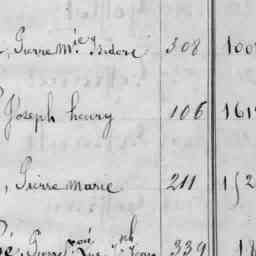 , Pierre Mie Isidore 308 100
Joseph henry 106 161
, Pierre marie 211 152
339 18